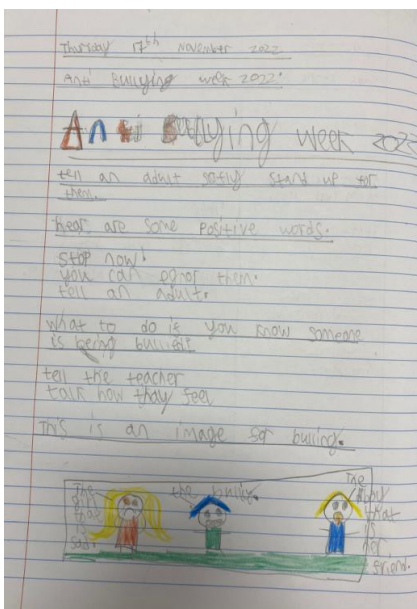 Thursday 17th November 2022
Anti Bullying week 2022.
Anti Bullying week 2022
tell an adult safty stand up for
them.
hear are some positive words.
Stop now!
you can egnor them.
tell an adult.
what to do if you know someone
is being bulleid
tell the teacher
talk how thay feel
This is an image for bulling.
The
girl
that
is
sad.
the bulliy.
The
that
is
her
friend.